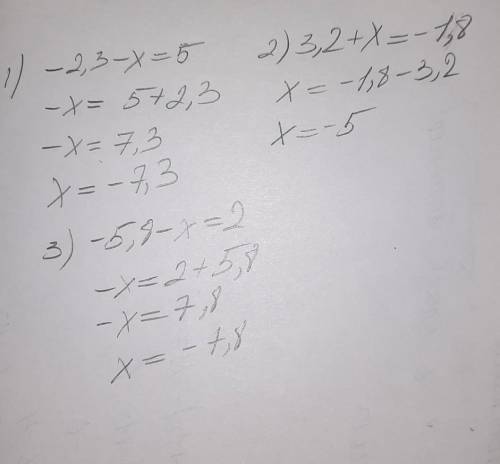 1) -2,3-x=5
-x= 5+2,3
-x= 7,3
x= -7,3
2) 3,2+x=-1,8
x= -1,8-3,2
x=-5
3) -5,8-x=2
-x=2+5,8
-x=7,8
x= -7,8